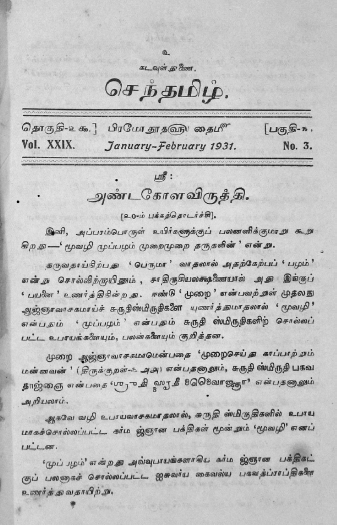 ௨
கடவுள் துணை.
செந்தமிழ்.
தொகுதி-௨௯] பிரமோதூதனு தைமீ [பகுதி-௩.
Vol. XXIX. January-February 1931. No. 3.
ஸ்ரீ:
அண்டகோளவிருத்தி.
பக்கத்தொடர்ச்சி].
இனி, அப்பரம்பொருள் உயிர்களுக்குப் பலனளிக்குமாறு கூறு
கிறது—‘மூவழி முப்பழம் முறைமுறை தருகலின்’ என்று.
தருவதாய்கிற்பது ‘பெருமா’ வாதலால் அதற்கேற்பப் ‘பழம்’
என்று சொல்லிற்றாயினும், அது இங்குப்
‘பயனை’ உணர்த்திநின்றது. ஈண்டு ‘முறை’ என்பவற்றுள் முதலது
ஆஜ்ஞாவாசகமாய்ச் சுருதிஸ்மிருதிகளை யுணர்த்துமாதலால் ‘மூவழி’
என்பதும் ‘முப்பழம்’ என்பதும் சுருதி ஸ்மிருதிகளிற் சொல்லப்
பட்ட உபாயங்களையும், பலன்களையும் குறித்தன.
முறை ஆஜ்ஞாவாசகமென்பதை ‘முறைசெய்து காப்பாற்றும்
மன்னவன்’ (திருக்குறள்- அ) என்பதனாலும், சுருதி ஸ்மிருதி பகவ
தாஜ்ஞை என்பதை என்பதனாலும்
அறியலாம்.
ஆகவே வழி உபாயவாசகமாதலால், சுருதி ஸ்மிருதிகளில் உபாய
மாகச்சொல்லப்பட்ட கர்ம ஜ்ஞான பக்திகள் மூன்றும் ‘மூவழி’ எனப்
பட்டன.
‘முப்பழம்’ என்றது அவ்வுபாயங்களாகிய கர்ம ஜ்ஞான பக்திகட்
குப் பலனாகச் சொல்லப்பட்ட ஐசுவர்ய கைவல்ய பகவத்ப்ராப்திகளை
உணர்த்துவதாயிற்று.